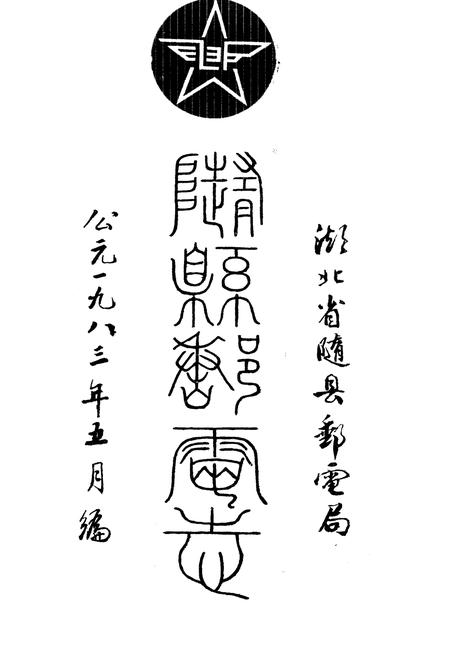 湖北省随县郵電局
隨縣郵電志
公元一九八三年五月編